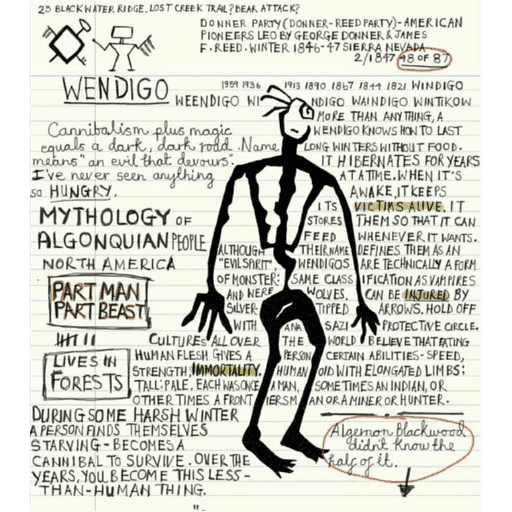 25 BLACKWATER RIDGE, LOST CREEK TRAIL? BEAR ATTACK?
DONNER PARTY (DONNER-REED PARTY)- AMERICAN
PIONEERS LED BY GEORGE DONNER & JAMES
F. REED. WINTER 1846-47 SIERRA NEVADA
2/1847 48 OF 87
WENDIGO
1959 1936 1913 1890 1867 1844 1821 WINDIGO
WEENDIGO WI NDIGO WAINDIGO WINTIKOW
MORE THAN ANYTHING, A
WENDIGO KNOWS HOW TO LAST
LONG WINTERS WITHOUT FOOD.
IT HIBERNATES FOR YEARS
AT A TIME. WHEN IT'S
AWAKE, IT KEEPS
ITS VICTIMS ALIVE. IT
STORES THEM SO THAT IT CAN
FEED WHENEVER IT WANTS.
Cannibalism plus magic
equals a dark, dark road. Name
means "an evil that devours".
I've never seen anything
so HUNGRY.
MYTHOLOGY OF
ALGONQUIAN PEOPLE
NORTH AMERICA
PART MAN
PART BEAST
LIVES IN
FORESTS
ALTHOUGH THEIR NAME DEFINES THEM AS AN
"EVIL SPIRIT", WENDIGOS ARE TECHNICALLY A FORM
OF MONSTER: SAME CLASSIFICATION AS VAMPIRES
AND WEREWOLVES. CAN BE INJURED BY
SILVER-TIPPED ARROWS. HOLD OFF
WITH ANASAZI PROTECTIVE CIRCLE.
CULTURES ALL OVER THE WORLD BELIEVE THAT EATING
HUMAN FLESH GIVES A PERSON CERTAIN ABILITIES - SPEED,
STRENGTH, IMMORTALITY. HUMANOID WITH ELONGATED LIMBS:
TALL: PALE. EACH WAS ONCE A MAN, SOMETIMES AN INDIAN, OR
OTHER TIMES A FRONTIERSMAN OR A MINER OR HUNTER.
DURING SOME HARSH WINTER
A PERSON FINDS THEMSELVES
STARVING - BECOMES A
CANNIBAL TO SURVIVE. OVER THE
YEARS, YOU BECOME THIS LESS-
-THAN-HUMAN THING.
Algernon Blackwood
didn't know the
half of it.